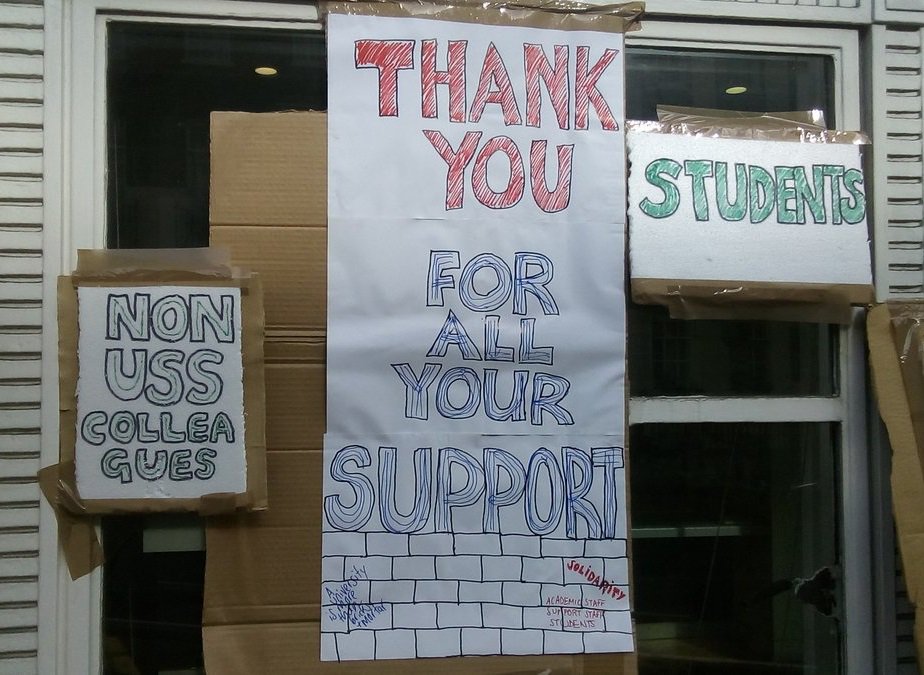 THANK
YOU
FOR
ALL
YOUR
SUPPORT
SOLIDARITY
ACADEMIC STAFF
SUPPORT STAFF
STUDENTS
A
University
is
more
than
STUDENTS
NON
USS
COLLEA
GUES